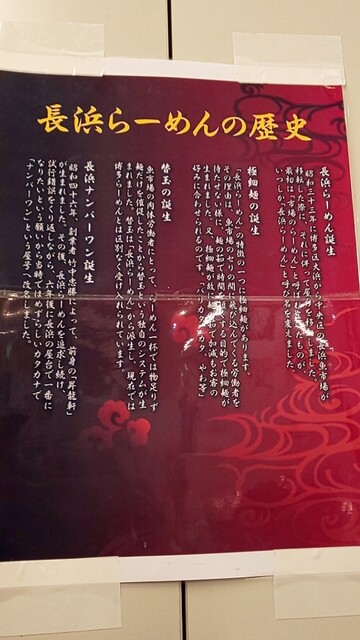 長浜らーめんの歴史
長浜らーめん誕生
昭和三十三年に博多区大浜から中央区の長浜魚市場が
移転した際に、それに伴って屋台も移動しました。
最初は「市場のらーめん」と呼ばれていたものが、
いつしか「長浜らーめん」と呼び名を変えました。
極細麺の誕生
「長浜らーめん」の特徴の一つに極細麺があります。
その理由は、魚市場のセリの間に飛び込んでくる労働者を
待たせない様に、麺の茹で時間を
生まれました。又、極細麺が
好みに合わせられるのです。
替玉の誕生
魚市場の肉体労働者にとって、らーめん一杯では物足りず
麺だけ催促した「替玉」という独自のシステムが生
まれました。替玉は「長浜らーめん」から派生し、現在では
博多らーめんとは区別なく受け入れられています。
長浜ナンバーワン誕生
昭和四十六年、創業者 竹中忠勝によって、前身の「昇龍軒」
が生まれました。その後、長浜らーめんを追求し続け
試行錯誤をくり返しながら、六年後に長浜の屋台で一番に
なりたいという願いから当時ではめずらしいカタカナで
「ナンバーワン」という屋号へ改名しました。